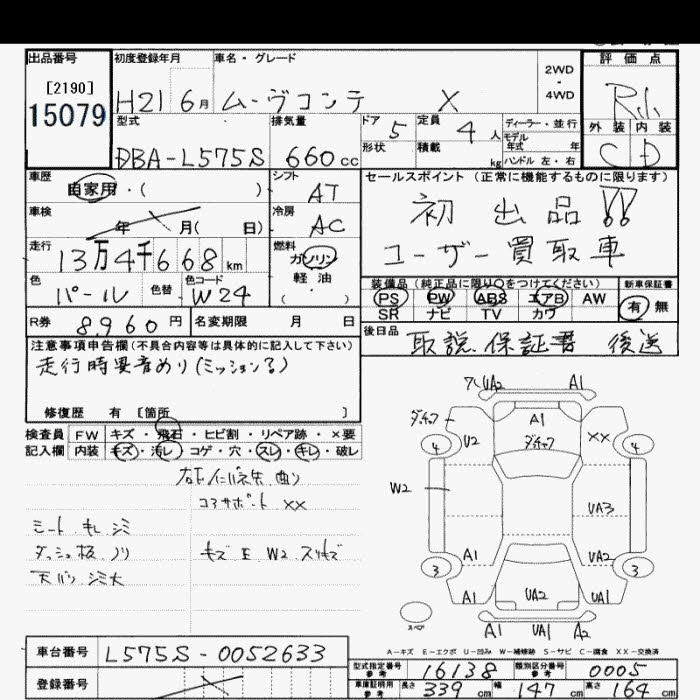 出品番号 初度登録年月 車名・グレード 2WD・4WD 評価点
[2190]
15079
H21 6月 ムーヴコンテ X
型式 排気量 ドア 5 定員 4人 ディーラー・並行
モデル年式 年
形状 積載 kg ハンドル 左・右
外装 内装
DBA-L575S 660cc C D
車歴 シフト セールスポイント(正常に機能するものに限ります)
自家用・( ) AT
初出品!!
車検 年 月( 日) 冷房 AC
ユーザー買取車
走行 燃料
13万4千668km ガソリン
軽油
( ・ )
色 色替 色コード
パール W24
装備品(純正品に限り○をつけてください) 新車保証書
PS PW ABS エアB AW 有 無
SR ナビ TV カワ
R券 8,960円 名変期限 月 日
後日品 取説 保証書 後送
注意事項申告欄(不具合内容等は具体的に記入して下さい)
走行時異音あり(ミッション
修復歴 有 [箇所 ]
検査員 FW キズ・飛石・ヒビ割・リペア跡・×要
記入欄 内装 キズ・汚レ・コゲ・穴・スレ・キレ・破レ
コアサポート XX
シート キレ シミ
ダッシュ板 ノリ キズ E W2 スリキズ
UA2 A1
A1
U2 XX
4 4
W2
UA3
A1 UA2
3 3
A1 UA2 UA1
スペア
A1 UA1 A2
A-キズ E-エクボ U-凹み W-補修跡 S-サビ C-腐食 XX-交換済
車台番号 L575S-0052633
型式指定番号 参考 16138 類別区分番号 参考 0005
登録番号
車庫証明用 参考 長さ 339cm 幅 147cm 高さ 164cm